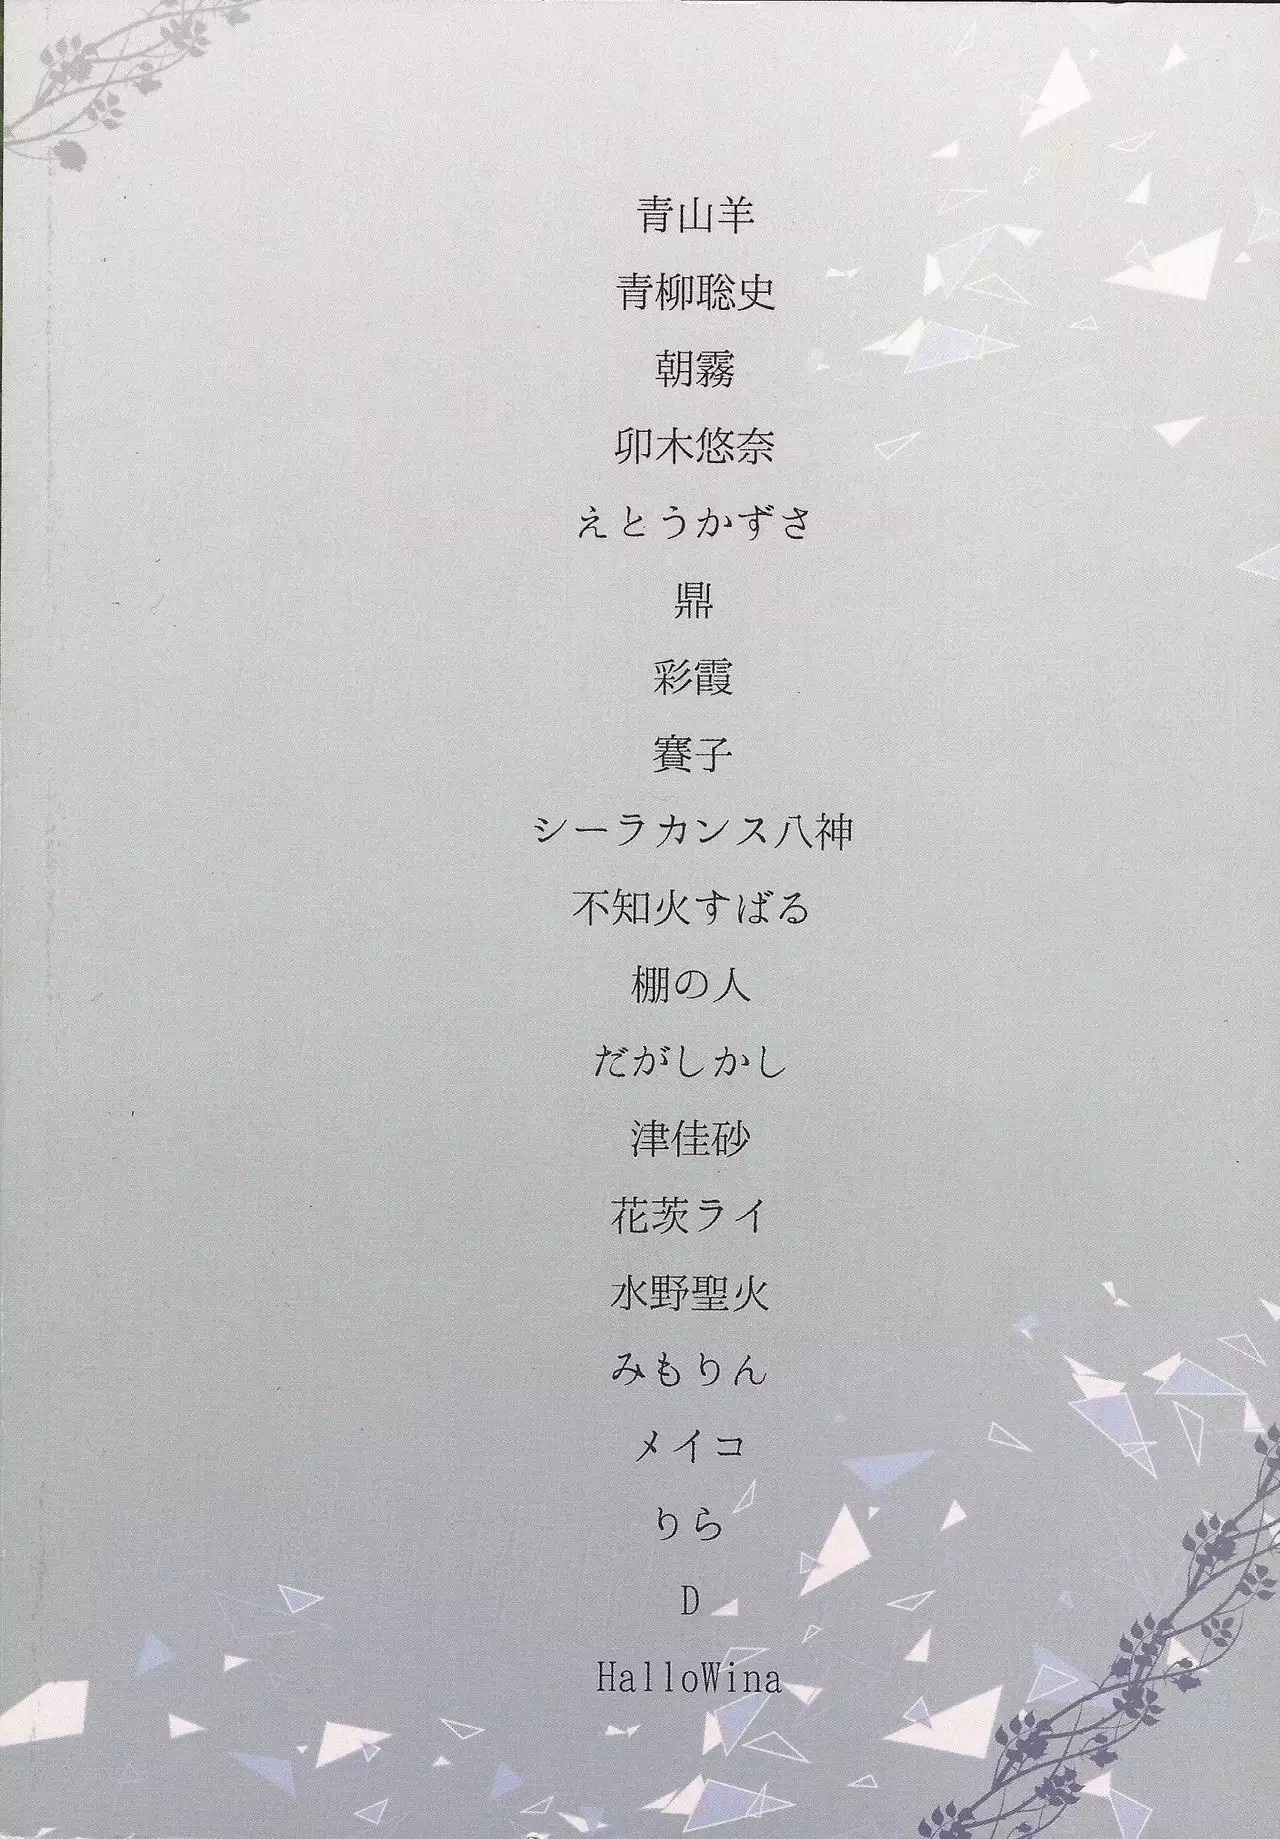 青山羊
青柳聡史
朝霧
卯木悠奈
えとうかずさ
鼎
彩霞
賽子
シーラカンス八神
不知火すばる
棚の人
だがしかし
津佳砂
花茨ライ
水野聖火
みもりん
メイコ
りら
D
HalloWina